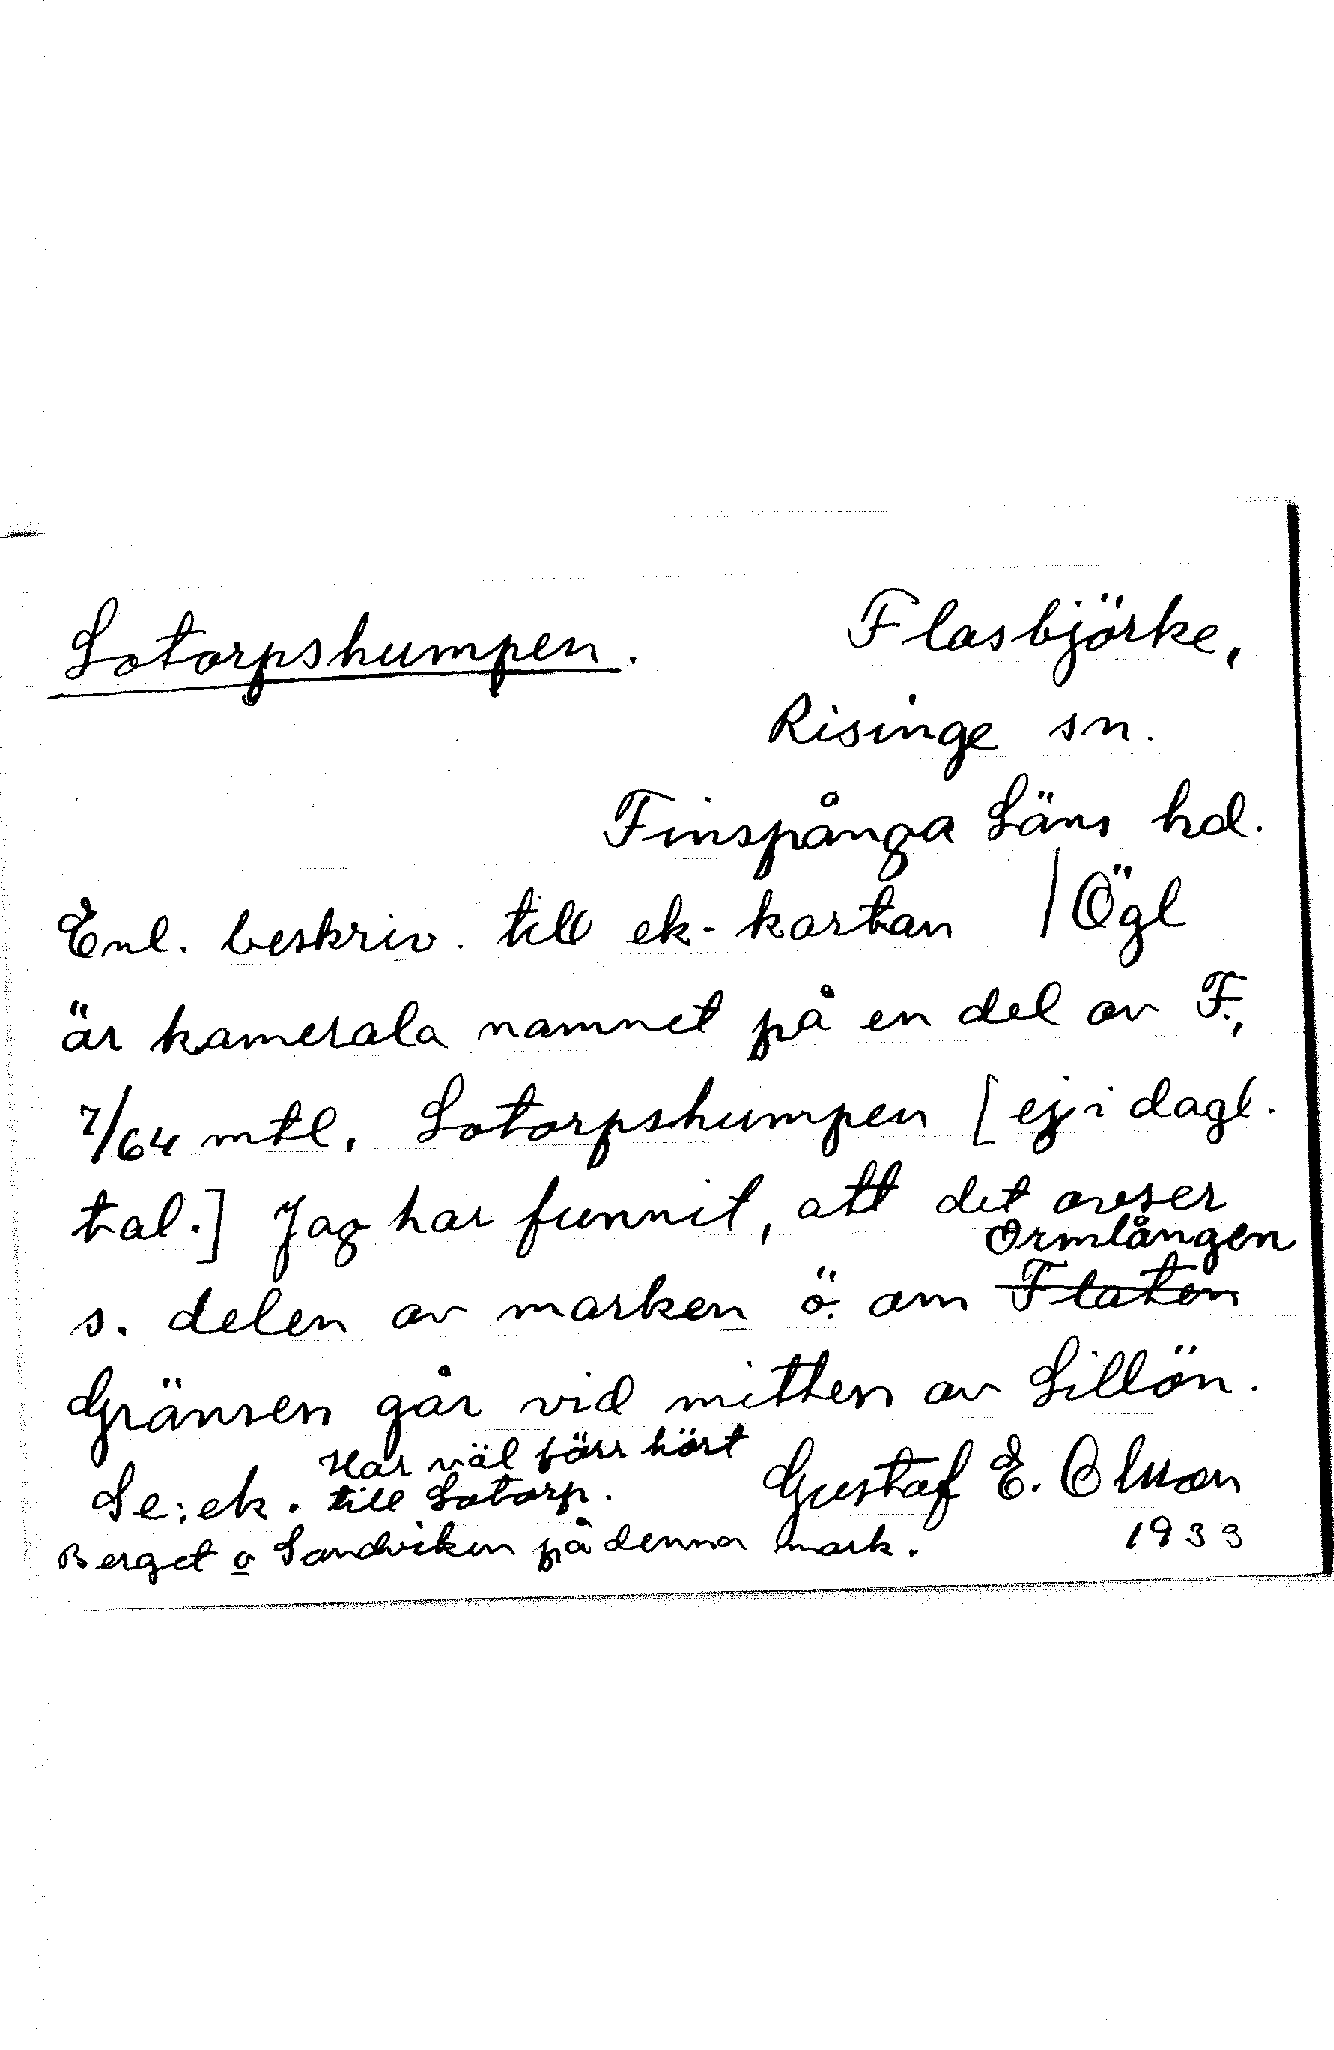 Lotorpshumpen.
Flasbjörke,
Risinge sn.
Finspånga Läns hd.
Enl. beskriv. till ek-kartan / Ögl
är kamerala namnet på en del av F.,
7/64 mtl. Lotorpshumpen [ej i dagl.
tal.] Jag har funnit, att det avser
Ormlången
s. delen av marken ö. om Flaten
Gränsen går vid mitten av Lillön.
Har väl förr hört
Se: ek. till Lotorp.
Gustaf E. Olsson
Berget o Sandviken på denna mark.
1933